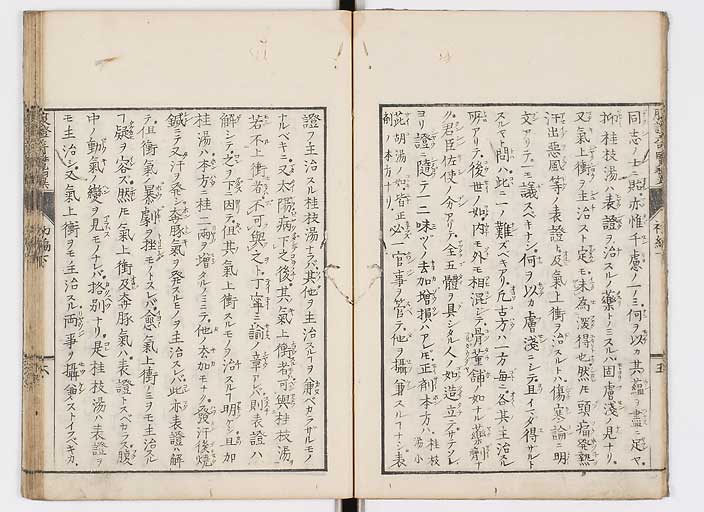 同志ノ士ニ貽亦惟千慮ノ一ノミ何ヲ以カ其蘊ヲ盡ニ足ヤ
抑桂枝湯ハ表證ヲ治スルノ藥トノミスルハ固膚淺ノ見ナリ
又氣上衝ヲ主治スト定モ未為深得也然モ頭痛發熱
汗出惡風等ノ表證ト及氣上衝ヲ治スルトハ傷寒論ニ明
文アリテ一モ議スベキナシ何ヲ以カ膚淺ニシテ且イマダ得サルト
スルヤト問ハ此ニ一ノ難ズベキアリ凡古方ハ一方毎ニ各其主治スル
所アリテ後世ノ如ク内モ外モ相混シテ骨董舗ノ如ナル藥劑ナ
ク君臣佐使ノ分アリテ全五體ヲ具シタル人ノ如ク造立テサテソレ
ヨリ證ニ隨テ一二味ツヽノ去加增損ハアレモ正劑本方ハ桂枝湯小
茈胡湯ノ如皆正劑ノ本方ナリ必一官事ヲ管テ他ヲ攝兼スルコナシ表
證ヲ主治スル桂枝湯ナラバ其他ヲ主治スルコヲ兼ベカラサルモノ
ナルベキニ又太陽病下之後其氣上衝者可與桂枝湯
若不上衝者不可與之ト丁寧ニ諭ノ章アレバ則表證ハ
解シテ之ヲ下ニ因テ但其氣上衝スルモノヲ治スルコ明ケシ且加
桂湯ハ本方ニ桂二兩ヲ增タルノミニテ他ノ去加モナク發汗後燒
鍼ニテ又汗ヲ發シ奔豚氣ヲ發スルモノヲ主治スレバ此亦表證ハ解
テ但衝氣ノ暴劇ヲ挫モノトスレバ愈氣上衝ノミヲモ主治スル
コ疑ヲ容ズ然モ氣上衝及奔豚氣ハ表證トスベカラス腹
中ノ動氣ノ變ヲ見モノナレバ格別ナリ是桂枝湯ハ表證ヲ
モ主治シ又氣上衝ヲモ主治スル兩事ヲ攝兼ストイスベキカ
初編下
五
初編下
六